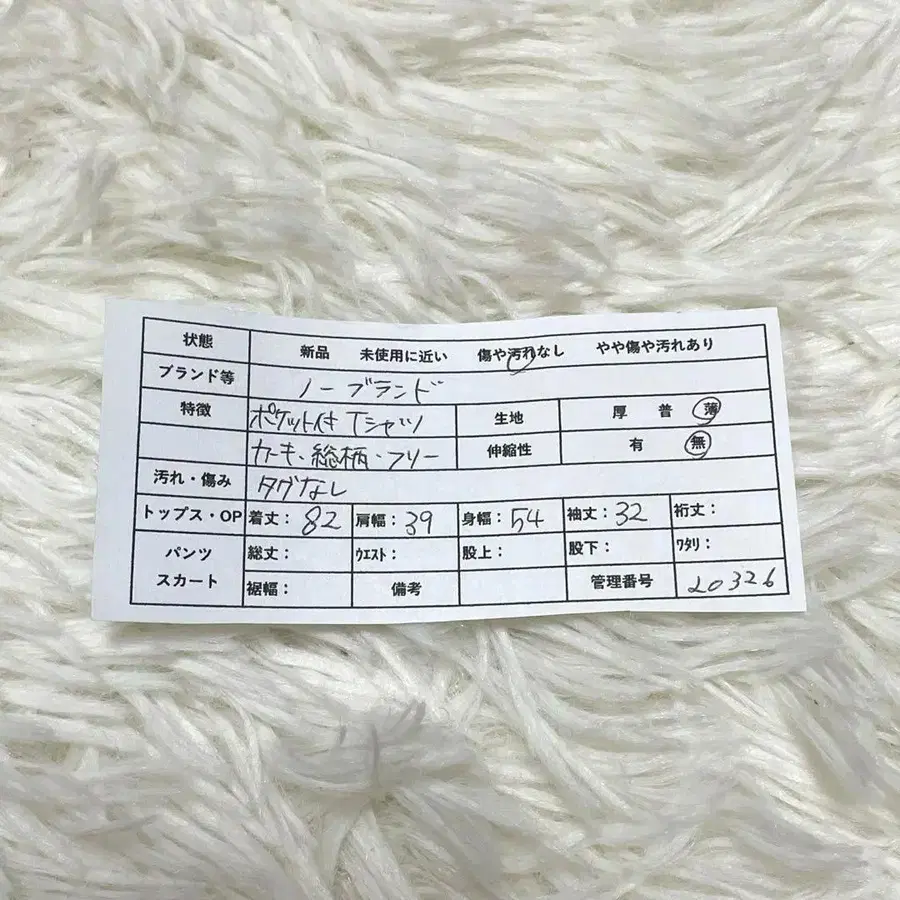 状態 新品 未使用に近い 傷や汚れなし やや傷や汚れあり
ブランド等 ノーブランド
特徴 ポケット付Tシャツ 生地 厚 普 薄
カーキ、総柄、フリー 伸縮性 有 無
汚れ・傷み タグなし
トップス・OP 着丈: 82 肩幅: 39 身幅: 54 袖丈: 32 裄丈:
パンツ 総丈: ウエスト: 股上: 股下: ワタリ:
スカート 裾幅: 備考 管理番号 20326